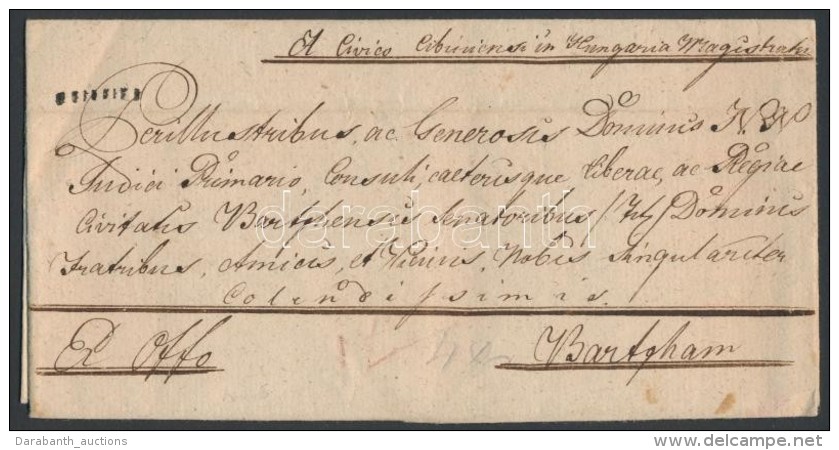 A Civico Cibiniensi in Hungaria Magistratu
Perillustribus, ac Generosis Dominis N. N.
Judici Primario, Consuli, caeterisque Liberae, ac Regiae
Civitatis Bartphensis Senatoribus /Ttl/ Dominis
Fratribus, Amicis, et Vicinis, Nobis Singulariter
Colendissimis.
Ex Offo
Bartpham
darabanth
Darabanth_auctions
delcampe.net